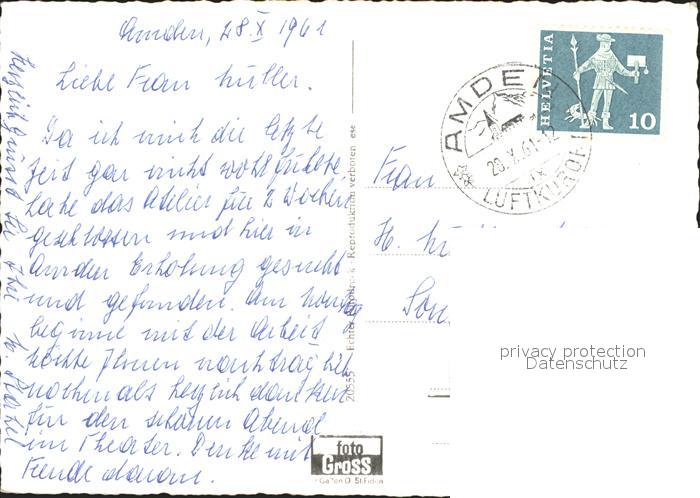 Amden, 28. X 1961
Liebe Frau Müller.
Da ich mich die letzte
Zeit gar nicht wohl fühlte
habe das Atelier für 2 Wochen
geschlossen und hier in
Amden Erholung gesucht
und gefunden. Am
beginne mit der Arbeit
möchte Ihnen nachträglich
nochmals herzlich danken
für den schönen Abend
im Theater. Denke mit
Freude daran.
Herzlich grüsst Sie Ihre
HELVETIA
10
AMDEN
28.X.61-12
LUFTKURORT
Frau
H. Müller
20355 Reproduktion verboten
foto
Gross
St. Gallen
privacy protection
Datenschutz